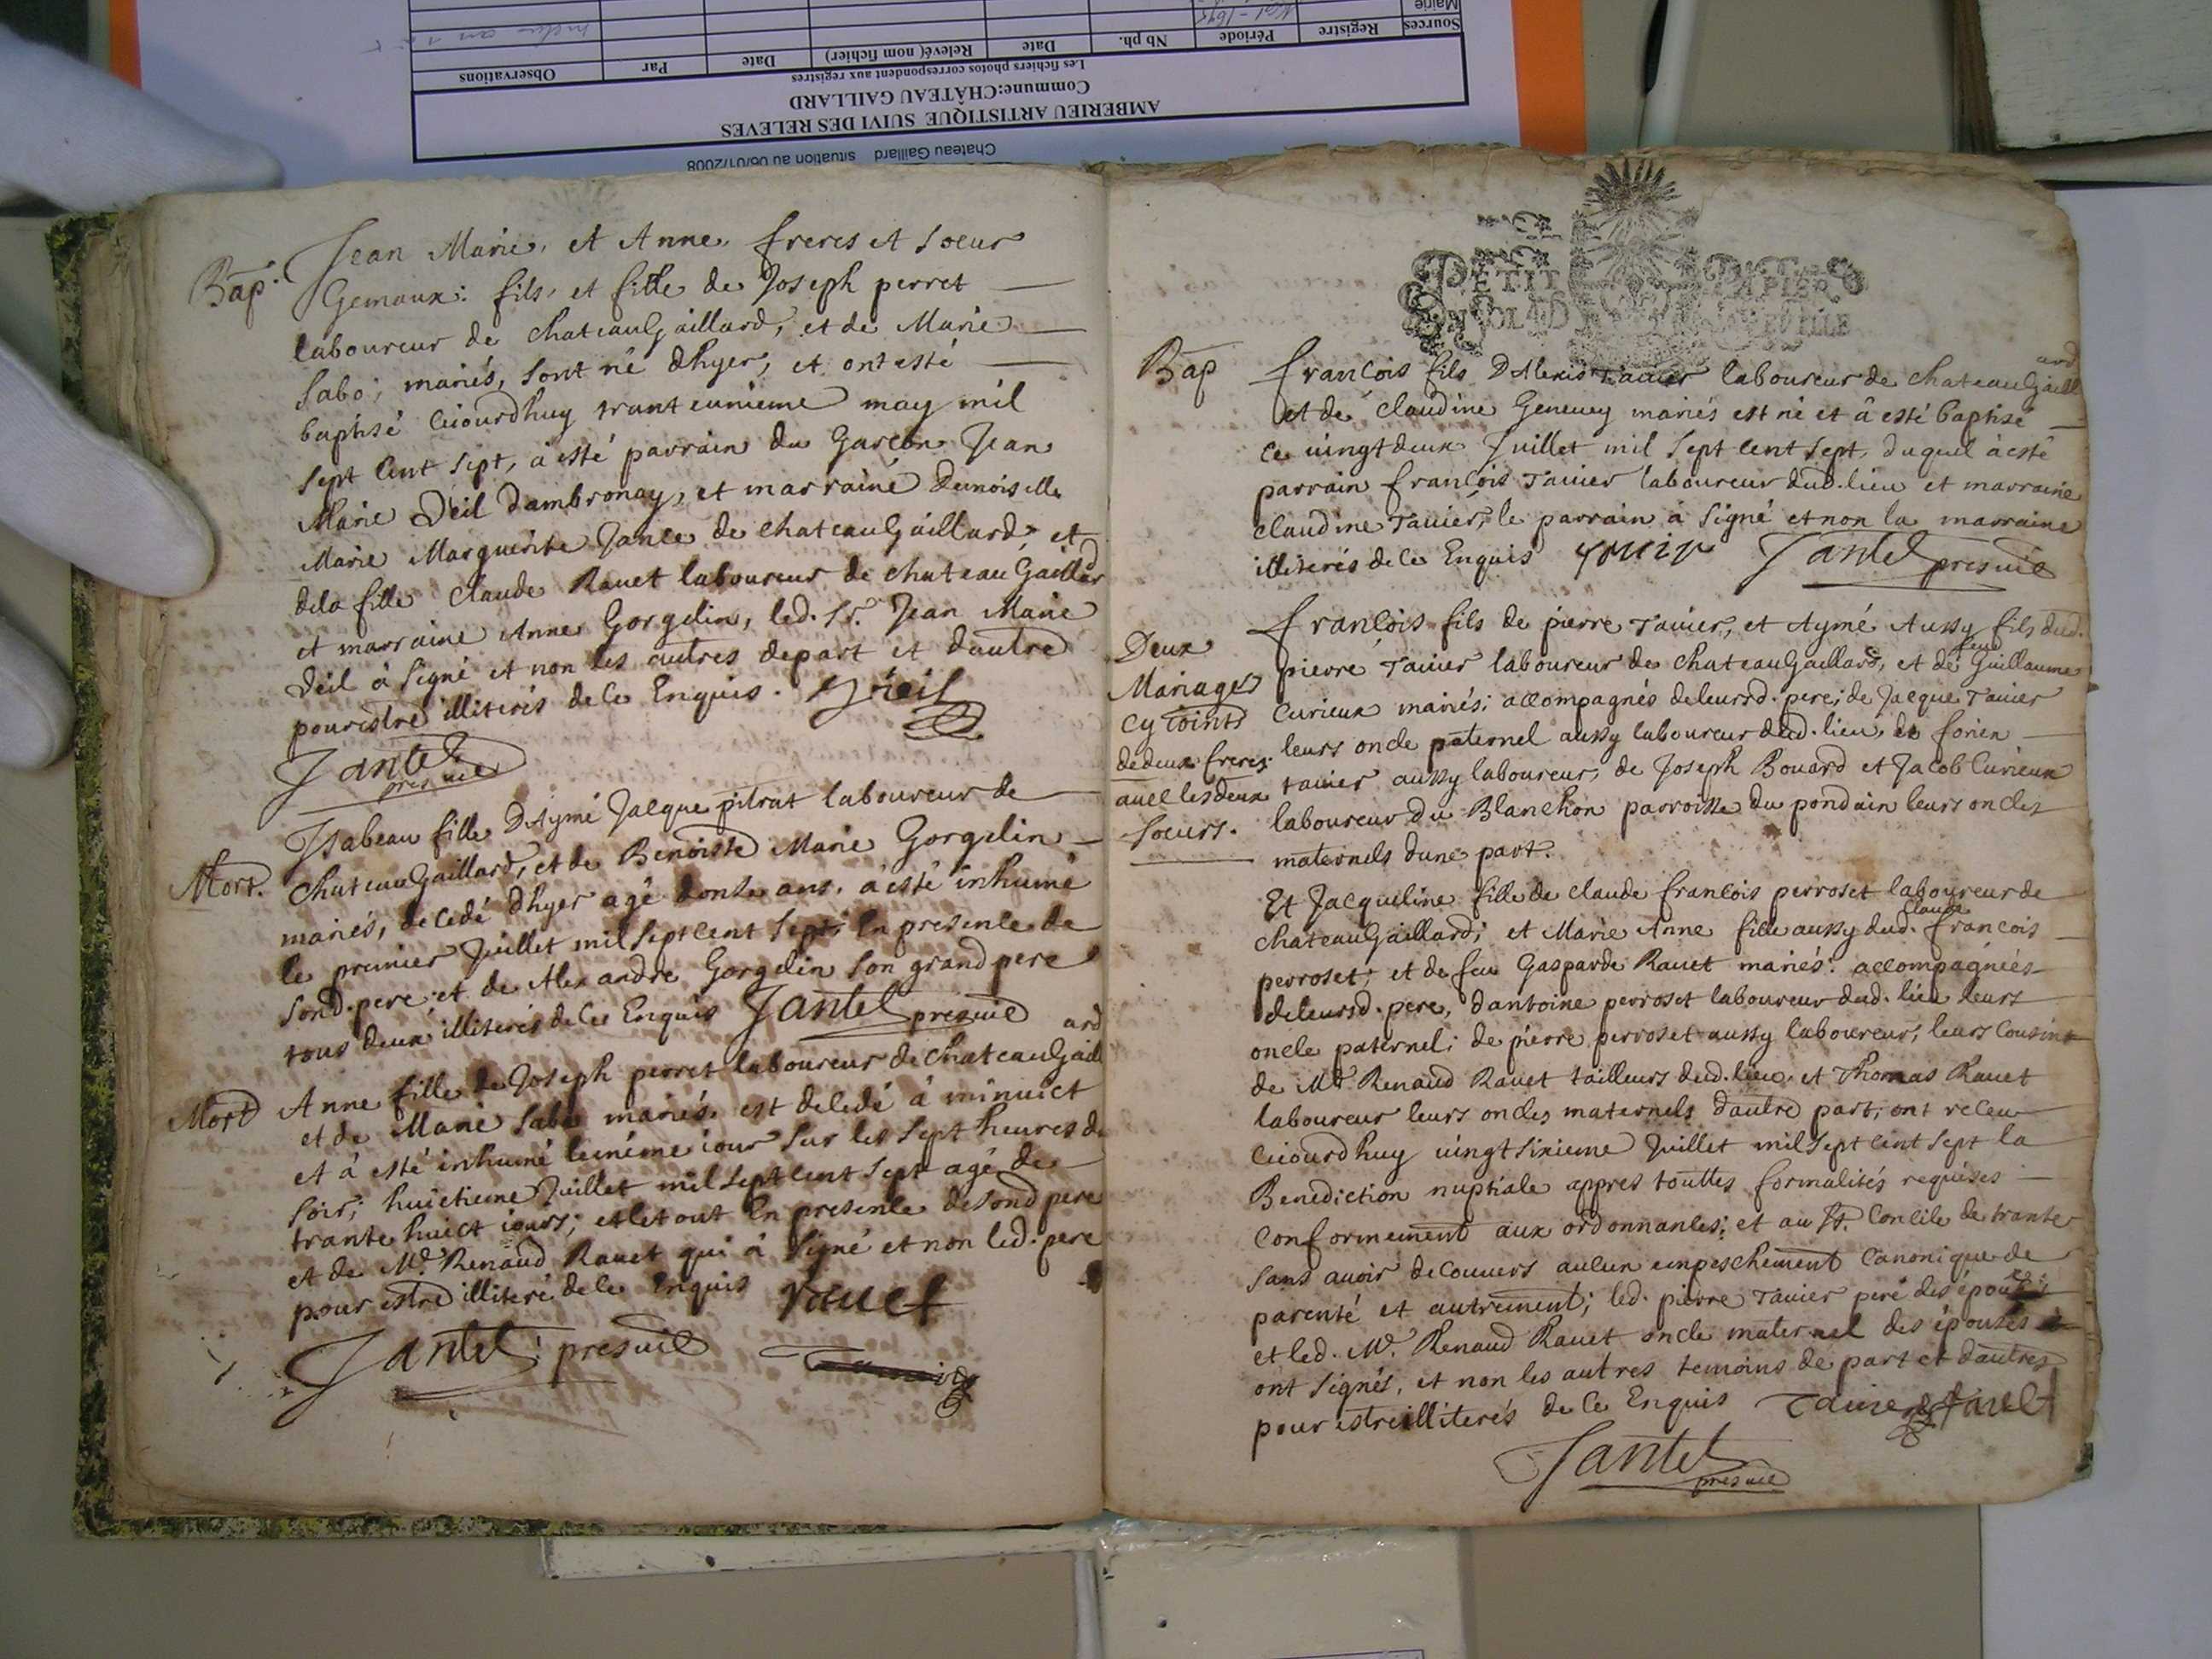 Chateau Gaillard situation au 06/01/2008
AMBERIEU ARTISTIQUE SUIVI DES RELEVES
Commune:CHÂTEAU GAILLARD
Les fichiers photos correspondent aux registres
Sources Registre Période Nb ph. Date Relevé( nom fichier) Date Par Observations
Mairie
Bap.
Jean Marie, et Anne, freres et soeur
Gemaux: fils, et fille de Joseph perret
laboureur de chateauGaillard, et de Marie
Sabo; mariés, sont né dhyer, et ont esté
baptisé ciourdhuy trant eunieme may mil
sept cent sept, a esté parrain du Garçon Jean
Marie Deil dambronay, et marraine Demoiselle
Marie Marguerite Jance de chateauGaillard, et
dela fille Claude Rauet laboureur de chateau Gaillard
et marraine Anne Gorgelin, led. Sr. Jean Marie
Deil à signé et non les autres depart et dautre
pourestre illiterés dece Enquis.
Jantet
presuie
Mort.
Isabeau fille DAymé Jacque pitrat laboureur de
ChateauGaillard, et de Benoiste Marie Gorgelin
mariés, decedé dhyer agé donse ans, a esté inhumé
le premier Juillet mil sept cent sept; En presence de
sond. pere et de Alexandre Gorgelin son grand pere
tous deux illiterés dece Enquis Jantet presuie
Mort
Anne fille de Joseph perret laboureur de chateauGaillard
et de Marie Sabo mariés, est decedé à minuict
et à esté inhumé lemême iour sur les sept heures du
soir; huictieme Juillet mil sept cent sept agé de
trante huict iours; et le tout En presence desond pere
et de Me. Renaud Rauet qui à signé et non led. pere
pour estre illiteré dece Enquis Rauet
Jantet presuie
PETIT PAPIER
Bap
françois fils DAlexis Tauier laboureur de chateauGaillard
et de Claudine Geneuey mariés est né et à esté baptisé
ce uingtdeux Juillet mil sept cent sept, duquel à esté
parrain françois Tauier laboureur dud. lieu et marraine
claudine Tauier, le parrain à signé et non la marraine
illiterés dece Enquis Jantet presuie
Deux
Mariages
cy ioints
dedeux freres
auec lesdeux
soeurs.
françois fils de pierre Tauier, et Aymé Aussy fils dud.
pierre Tauier laboureur de chateauGaillard, et de feue Guillaume
Curieux mariés; accompagnés deleursd. pere; de Jacque Tauier
leurs oncle paternel aussy laboureur dud. lieu, de
tauier aussy laboureur, de Joseph Bouard et Jacob Curieux
laboureur du Blanchon parroisse du pondain leurs oncles
maternels dune part.
Et Jacqueline fille de claude françois perroset laboureur de
chateauGaillard; et Marie Anne fille aussy dud. Claude françois
perroset; et de feue Gasparde Rauet mariés: accompagnées
deleursd. pere, dantoine perroset laboureur dud. lieu leurs
oncle paternel; de pierre perroset aussy laboureur, leurs cousin
de Me Renaud Rauet tailleurs dud. lieu, et Thomas Rauet
laboureur leurs oncles maternels dautre part, ont receu
ciourdhuy uingtsixieme Juillet mil sept cent sept la
Benediction nuptiale appres touttes formalités requises
conformement aux ordonnances; et au St. Concile de trante
sans auoir decouuers aucun empeschement Canonique de
parenté et autrement; led. pierre Tauier pere des époux
et led. Me. Renaud Rauet oncle maternel des épouses
ont signés, et non les autres temoins de part et dautres
pour estreilliterés de ce Enquis Tauier Rauet
Jantet
presuie